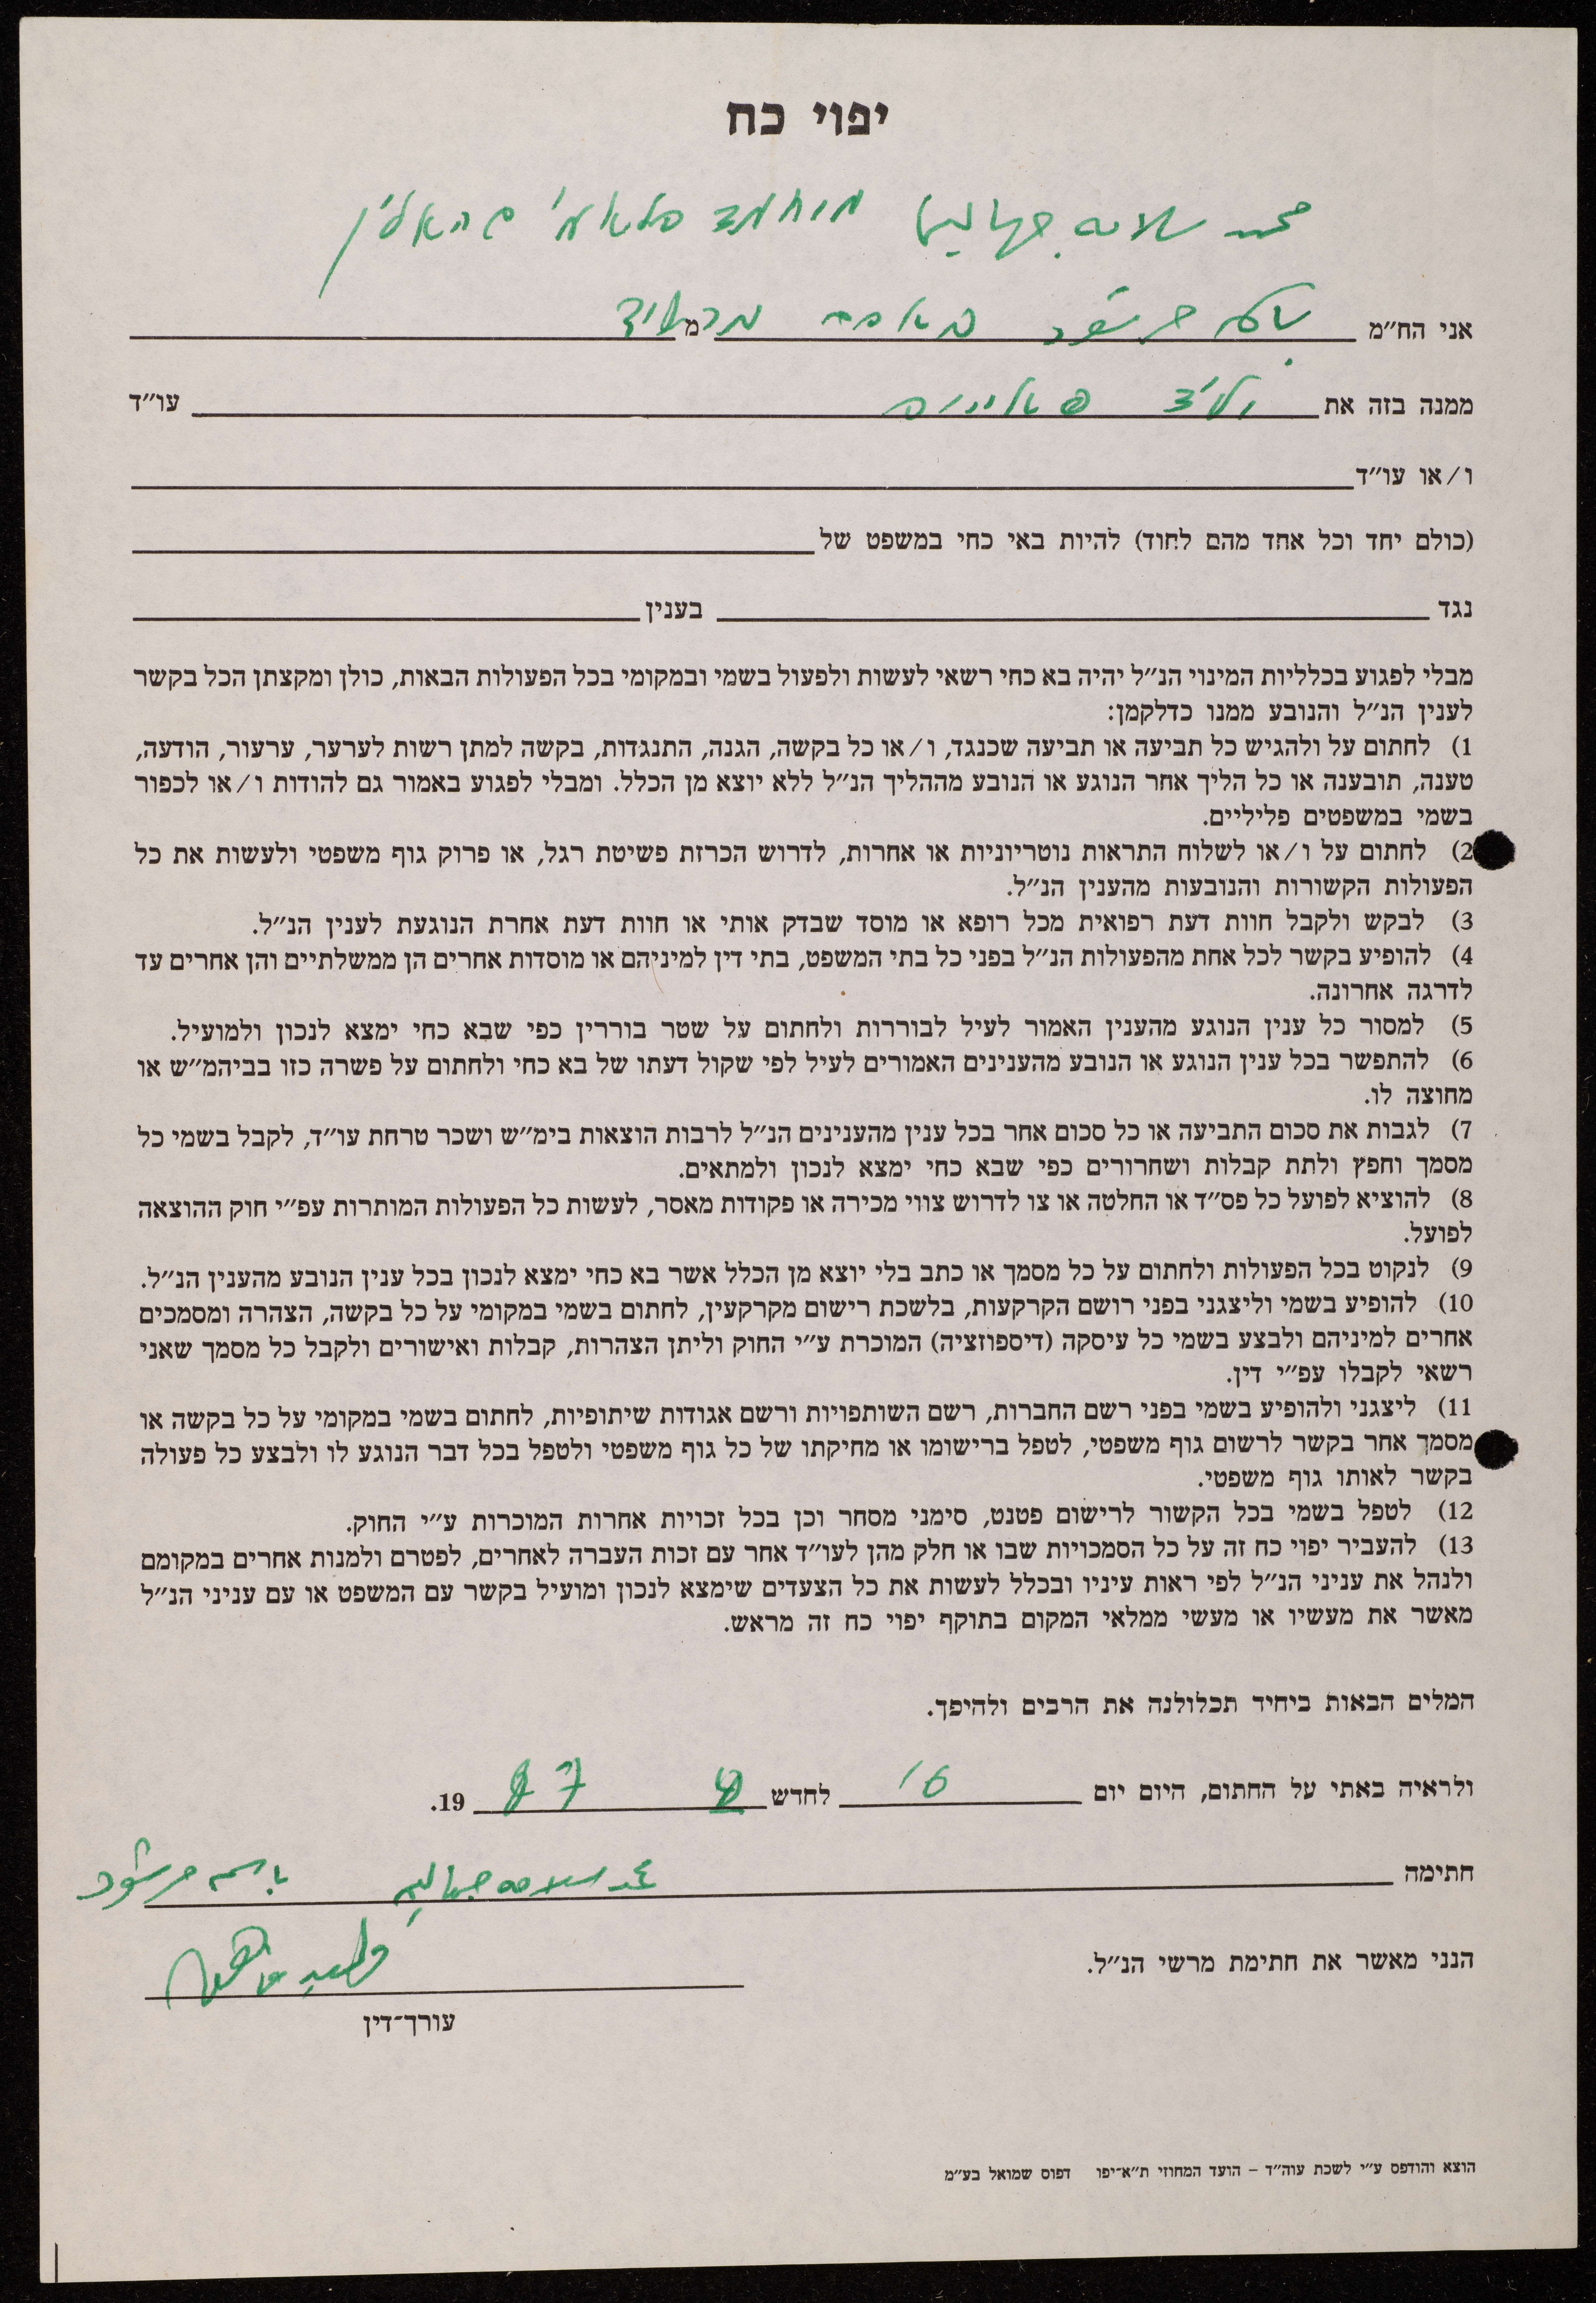 יפוי כח
محمد سلامه جهالين מוחמד סלאמי גהאלין
אני הח״מ باسم مرشود באסם מרשוד מ
ממנה בזה את וליד עו״ד
ו/או עו״ד
(כולם יחד וכל אחד מהם לחוד) להיות באי כחי במשפט של
נגד בענין
מבלי לפגוע בכלליות המינוי הנ״ל יהיה בא כחי רשאי לעשות ולפעול בשמי ובמקומי בכל הפעולות הבאות, כולן ומקצתן הכל בקשר
לענין הנ״ל והנובע ממנו כדלקמן:
1) לחתום על ולהגיש כל תביעה או תביעה שכנגד, ו/או כל בקשה, הגנה, התנגדות, בקשה למתן רשות לערער, ערעור, הודעה,
טענה, תובענה או כל הליך אחר הנוגע או הנובע מההליך הנ״ל ללא יוצא מן הכלל. ומבלי לפגוע באמור גם להודות ו/או לכפור
בשמי במשפטים פליליים.
2) לחתום על ו/או לשלוח התראות נוטריוניות או אחרות, לדרוש הכרזת פשיטת רגל, או פרוק גוף משפטי ולעשות את כל
הפעולות הקשורות והנובעות מהענין הנ״ל.
3) לבקש ולקבל חוות דעת רפואית מכל רופא או מוסד שבדק אותי או חוות דעת אחרת הנוגעת לענין הנ״ל.
4) להופיע בקשר לכל אחת מהפעולות הנ״ל בפני כל בתי המשפט, בתי דין למיניהם או מוסדות אחרים הן ממשלתיים והן אחרים עד
לדרגה אחרונה.
5) למסור כל ענין הנוגע מהענין האמור לעיל לבוררות ולחתום על שטר בוררין כפי שבא כחי ימצא לנכון ולמועיל.
6) להתפשר בכל ענין הנוגע או הנובע מהענינים האמורים לעיל לפי שקול דעתו של בא כחי ולחתום על פשרה כזו בביהמ״ש או
מחוצה לו.
7) לגבות את סכום התביעה או כל סכום אחר בכל ענין מהענינים הנ״ל לרבות הוצאות בימ״ש ושכר טרחת עו״ד, לקבל בשמי כל
מסמך וחפץ ולתת קבלות ושחרורים כפי שבא כחי ימצא לנכון ולמתאים.
8) להוציא לפועל כל פס״ד או החלטה או צו לדרוש צווי מכירה או פקודות מאסר, לעשות כל הפעולות המותרות עפ״י חוק ההוצאה
לפועל.
9) לנקוט בכל הפעולות ולחתום על כל מסמך או כתב בלי יוצא מן הכלל אשר בא כחי ימצא לנכון בכל ענין הנובע מהענין הנ״ל.
10) להופיע בשמי וליצגני בפני רושם הקרקעות, בלשכת רישום מקרקעין, לחתום בשמי במקומי על כל בקשה, הצהרה ומסמכים
אחרים למיניהם ולבצע בשמי כל עיסקה (דיספוזציה) המוכרת ע״י החוק וליתן הצהרות, קבלות ואישורים ולקבל כל מסמך שאני
רשאי לקבלו עפ״י דין.
11) ליצגני ולהופיע בשמי בפני רשם החברות, רשם השותפויות ורשם אגודות שיתופיות, לחתום בשמי במקומי על כל בקשה או
מסמך אחר בקשר לרשום גוף משפטי, לטפל ברישומו או מחיקתו של כל גוף משפטי ולטפל בכל דבר הנוגע לו ולבצע כל פעולה
בקשר לאותו גוף משפטי.
12) לטפל בשמי בכל הקשור לרישום פטנט, סימני מסחר וכן בכל זכויות אחרות המוכרות ע״י החוק.
13) להעביר יפוי כח זה על כל הסמכויות שבו או חלק מהן לעו״ד אחר עם זכות העברה לאחרים, לפטרם ולמנות אחרים במקומם
ולנהל את עניני הנ״ל לפי ראות עיניו ובכלל לעשות את כל הצעדים שימצא לנכון ומועיל בקשר עם המשפט או עם עניני הנ״ל
מאשר את מעשיו או מעשי ממלאי המקום בתוקף יפוי כח זה מראש.
המלים הבאות ביחיד תכלולנה את הרבים ולהיפך.
ולראיה באתי על החתום, היום יום 16 לחדש 87 19.
חתימה محمد سلامه جهالين باسم مرشود
הנני מאשר את חתימת מרשי הנ״ל.
עורך־דין
הוצא והודפס ע״י לשכת עוה״ד – הועד המחוזי ת״א־יפו דפוס שמואל בע״מ